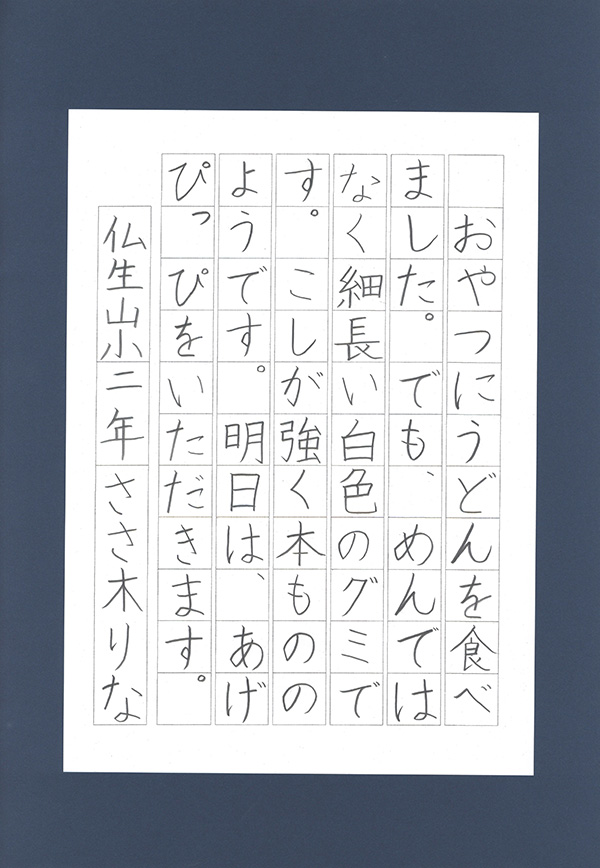 おやつにうどんを食べ
ました。でも、めんでは
なく細長い白色のグミで
す。こしが強く本ものの
ようです。明日は、あげ
ぴっぴをいただきます。
仏生山小二年ささ木りな